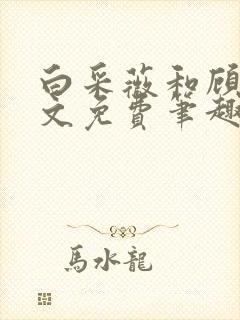 白采薇和顾
文免费笔趣
馬水龍